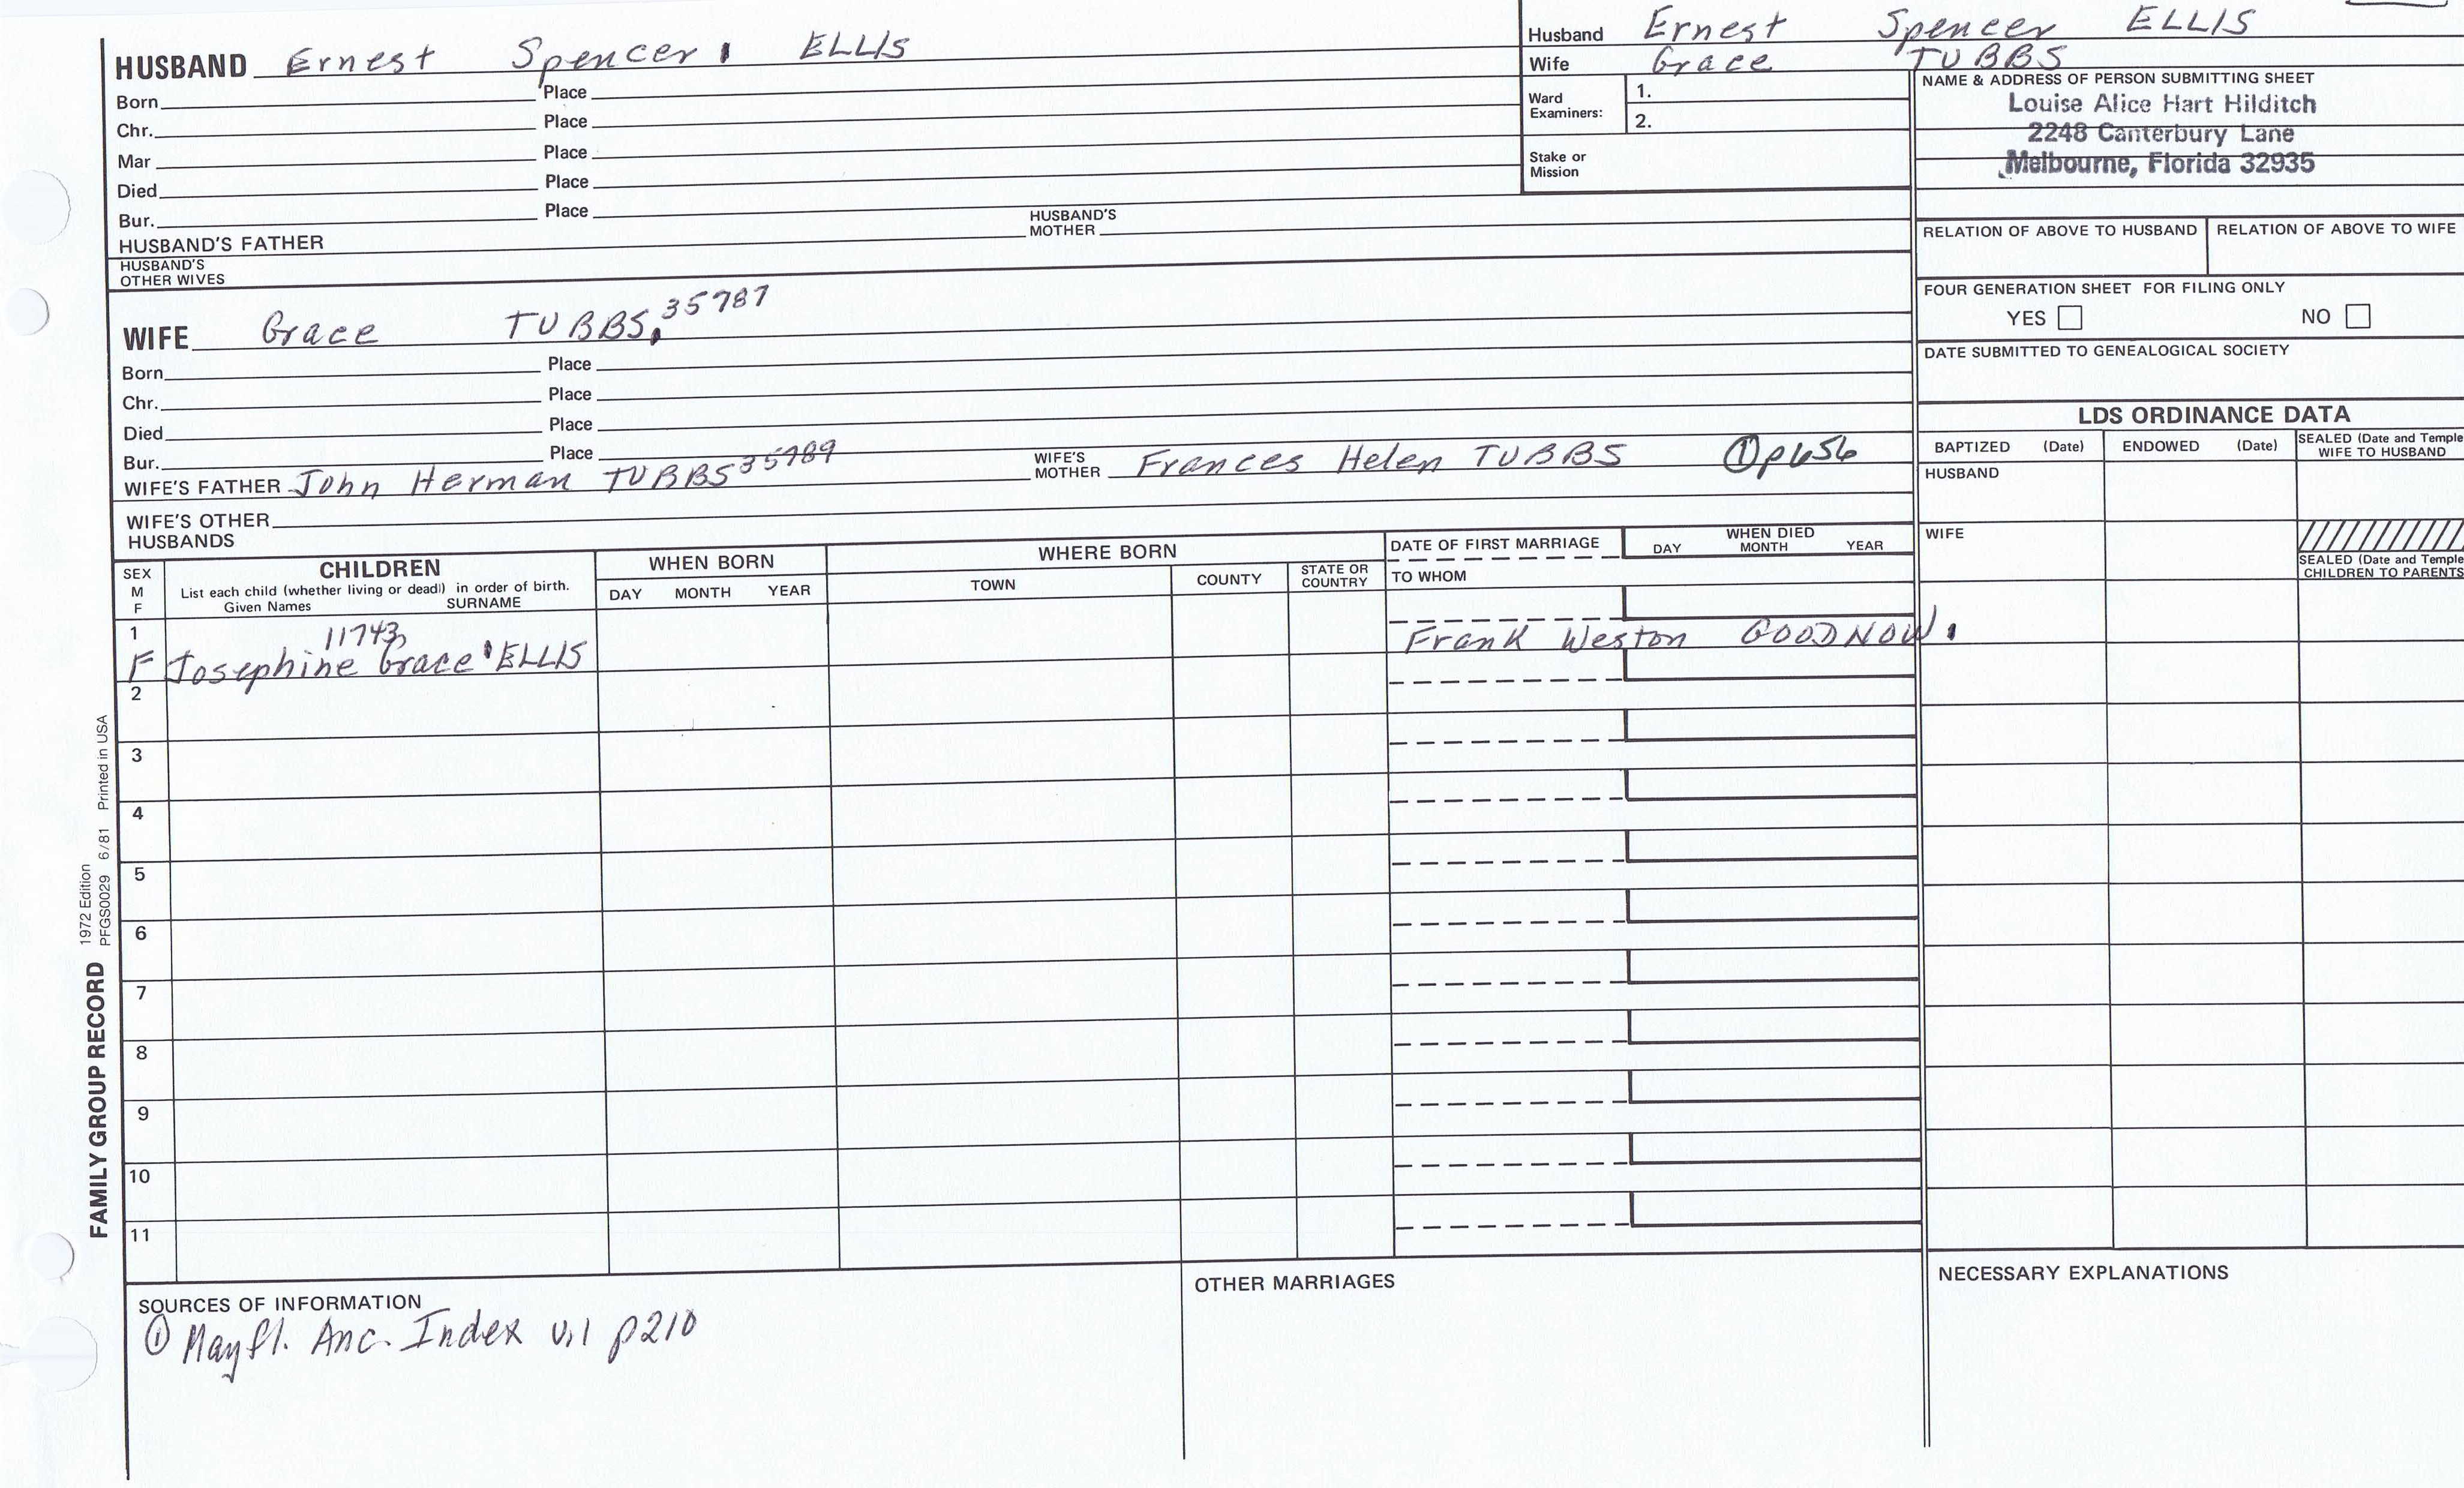 HUSBAND Ernest Spencer ELLIS
Born Place
Chr. Place
Mar Place
Died Place
Bur. Place
HUSBAND'S FATHER HUSBAND'S MOTHER
HUSBAND'S OTHER WIVES
Husband Ernest Spencer ELLIS
Wife Grace TUBBS
Ward Examiners: 1.
2.
Stake or Mission
NAME & ADDRESS OF PERSON SUBMITTING SHEET
Louise Alice Hart Hilditch
2248 Canterbury Lane
Melbourne, Florida 32935
RELATION OF ABOVE TO HUSBAND RELATION OF ABOVE TO WIFE
FOUR GENERATION SHEET FOR FILING ONLY
YES NO
DATE SUBMITTED TO GENEALOGICAL SOCIETY
WIFE Grace TUBBS 35787
Born Place
Chr. Place
Died Place
Bur. Place
WIFE'S FATHER John Herman TUBBS 35789 WIFE'S MOTHER Frances Helen TUBBS ① p656
WIFE'S OTHER HUSBANDS
LDS ORDINANCE DATA
BAPTIZED (Date) ENDOWED (Date) SEALED (Date and Temple) WIFE TO HUSBAND
HUSBAND
WIFE
SEALED (Date and Temple) CHILDREN TO PARENTS
SEX M F
CHILDREN
List each child (whether living or dead) in order of birth.
Given Names SURNAME
WHEN BORN
DAY MONTH YEAR
WHERE BORN
TOWN COUNTY STATE OR COUNTRY
DATE OF FIRST MARRIAGE
TO WHOM
WHEN DIED
DAY MONTH YEAR
1 11743
F Josephine Grace ELLIS Frank Weston GOODNOW
2
3
4
5
6
7
8
9
10
11
FAMILY GROUP RECORD 1972 Edition
PFGS0029 6/81 Printed in USA
SOURCES OF INFORMATION
① Mayfl. Anc. Index v.1 p210
OTHER MARRIAGES
NECESSARY EXPLANATIONS